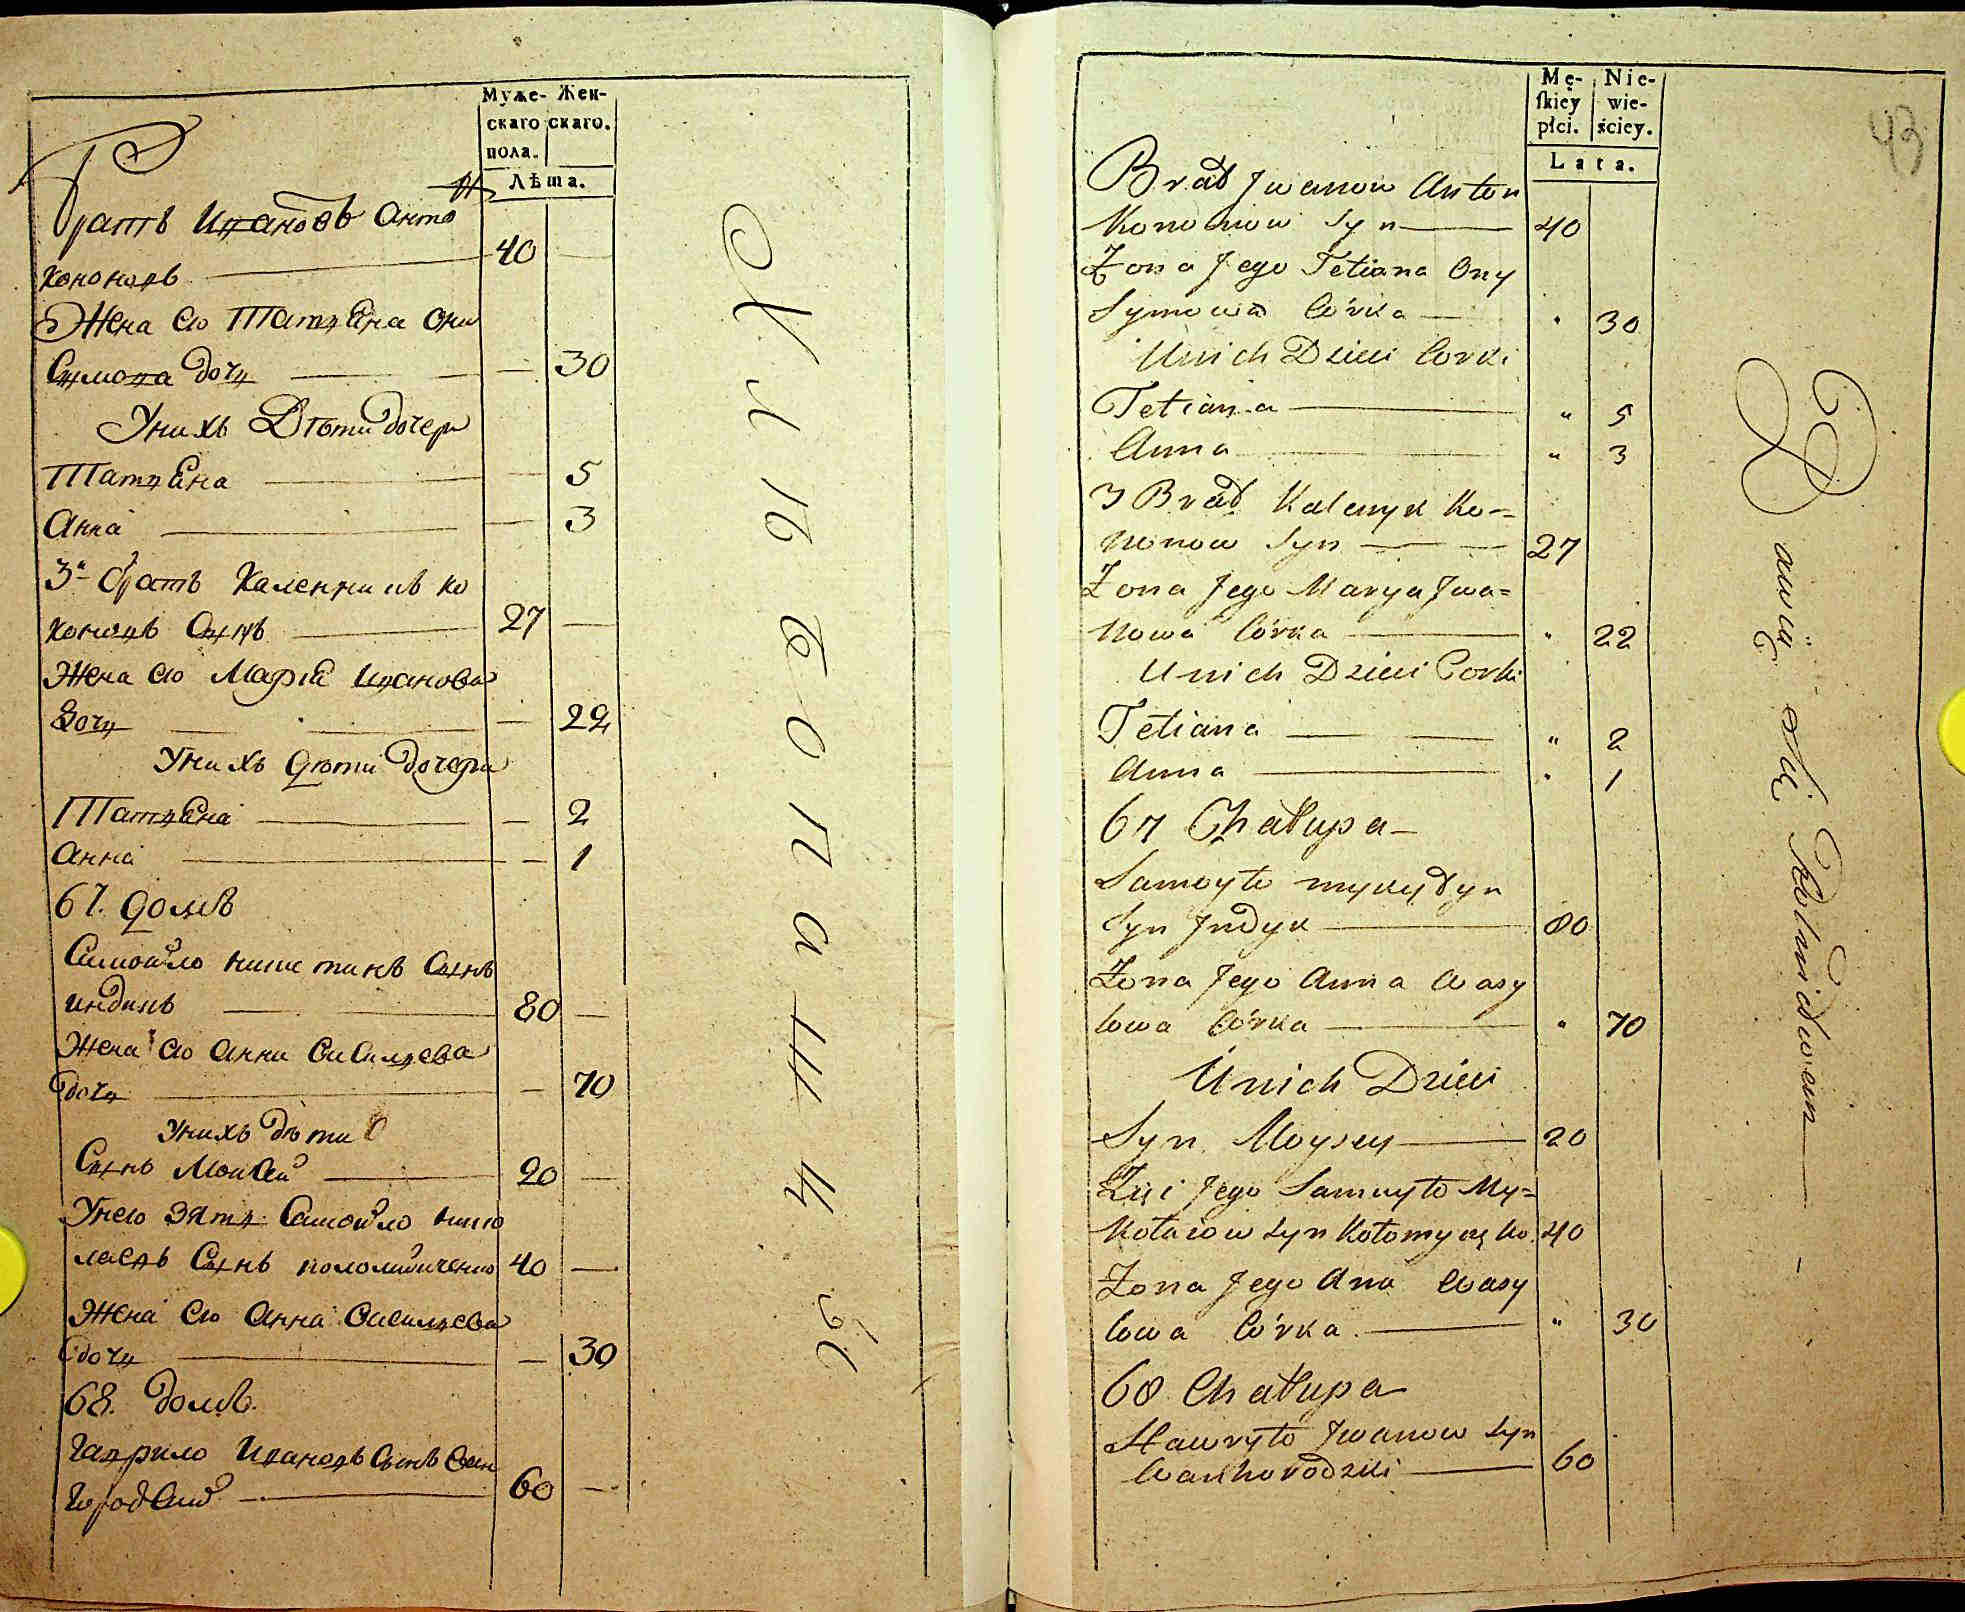 Муже- Жен-
скаго скаго.
пола.
Лѣта.
Братъ Ивановъ Антон
Кононовъ 40
Жена его Татіана Они
Симова дочь 30
У нихъ Дѣти дочери
Татіана 5
Анна 3
3й братъ Каленикъ Ко
ноновъ Сынъ 27
Жена его Марія Иванова
Дочь 22
У нихъ дѣти дочери
Татіана 2
Анна 1
67. домъ
Самойло Сынъ
индикъ 80
Жена его Анна Василева
дочь 70
У нихъ дѣти
Сынъ Моисей 20
У него зять Самойло Нико
лаевъ Сынъ 40
Жена его Анна Василева
дочь 30
68. домъ.
Гаврило Ивановъ Сынъ Ван
городскій 60
Mę- Nie-
skiey wie-
płci. ściey.
Lata.
43
Brat Jwanow Anton
Kononow Syn 40
Żona Jego Tetiana Ony
Symowa Córka " 30
Unich Dzieci Corki
Tetiana " 5
Anna " 3
3 Brat Kalenyk Ko=
nonow Syn 27
Żona Jego Marya Jwa=
nowa Córka " 22
Unich Dzieci Corki
Tetiana " 2
Anna " 1
67 Chałupa
Samoyło Mykytyn
Syn Jndyk 80
Żona Jego Anna Wasy
lowa Córka " 70
Unich Dzieci
Syn Moysey 20
Zięć Jego Samuyło My=
kołaiow Syn Kołomyycę ko. 40
Żona Jego Ana Wasy
lowa Córka " 30
68 Chałupa
Hawryło Jwanow Syn
Wanhorodzki 60
Bawią się Rolnictwem